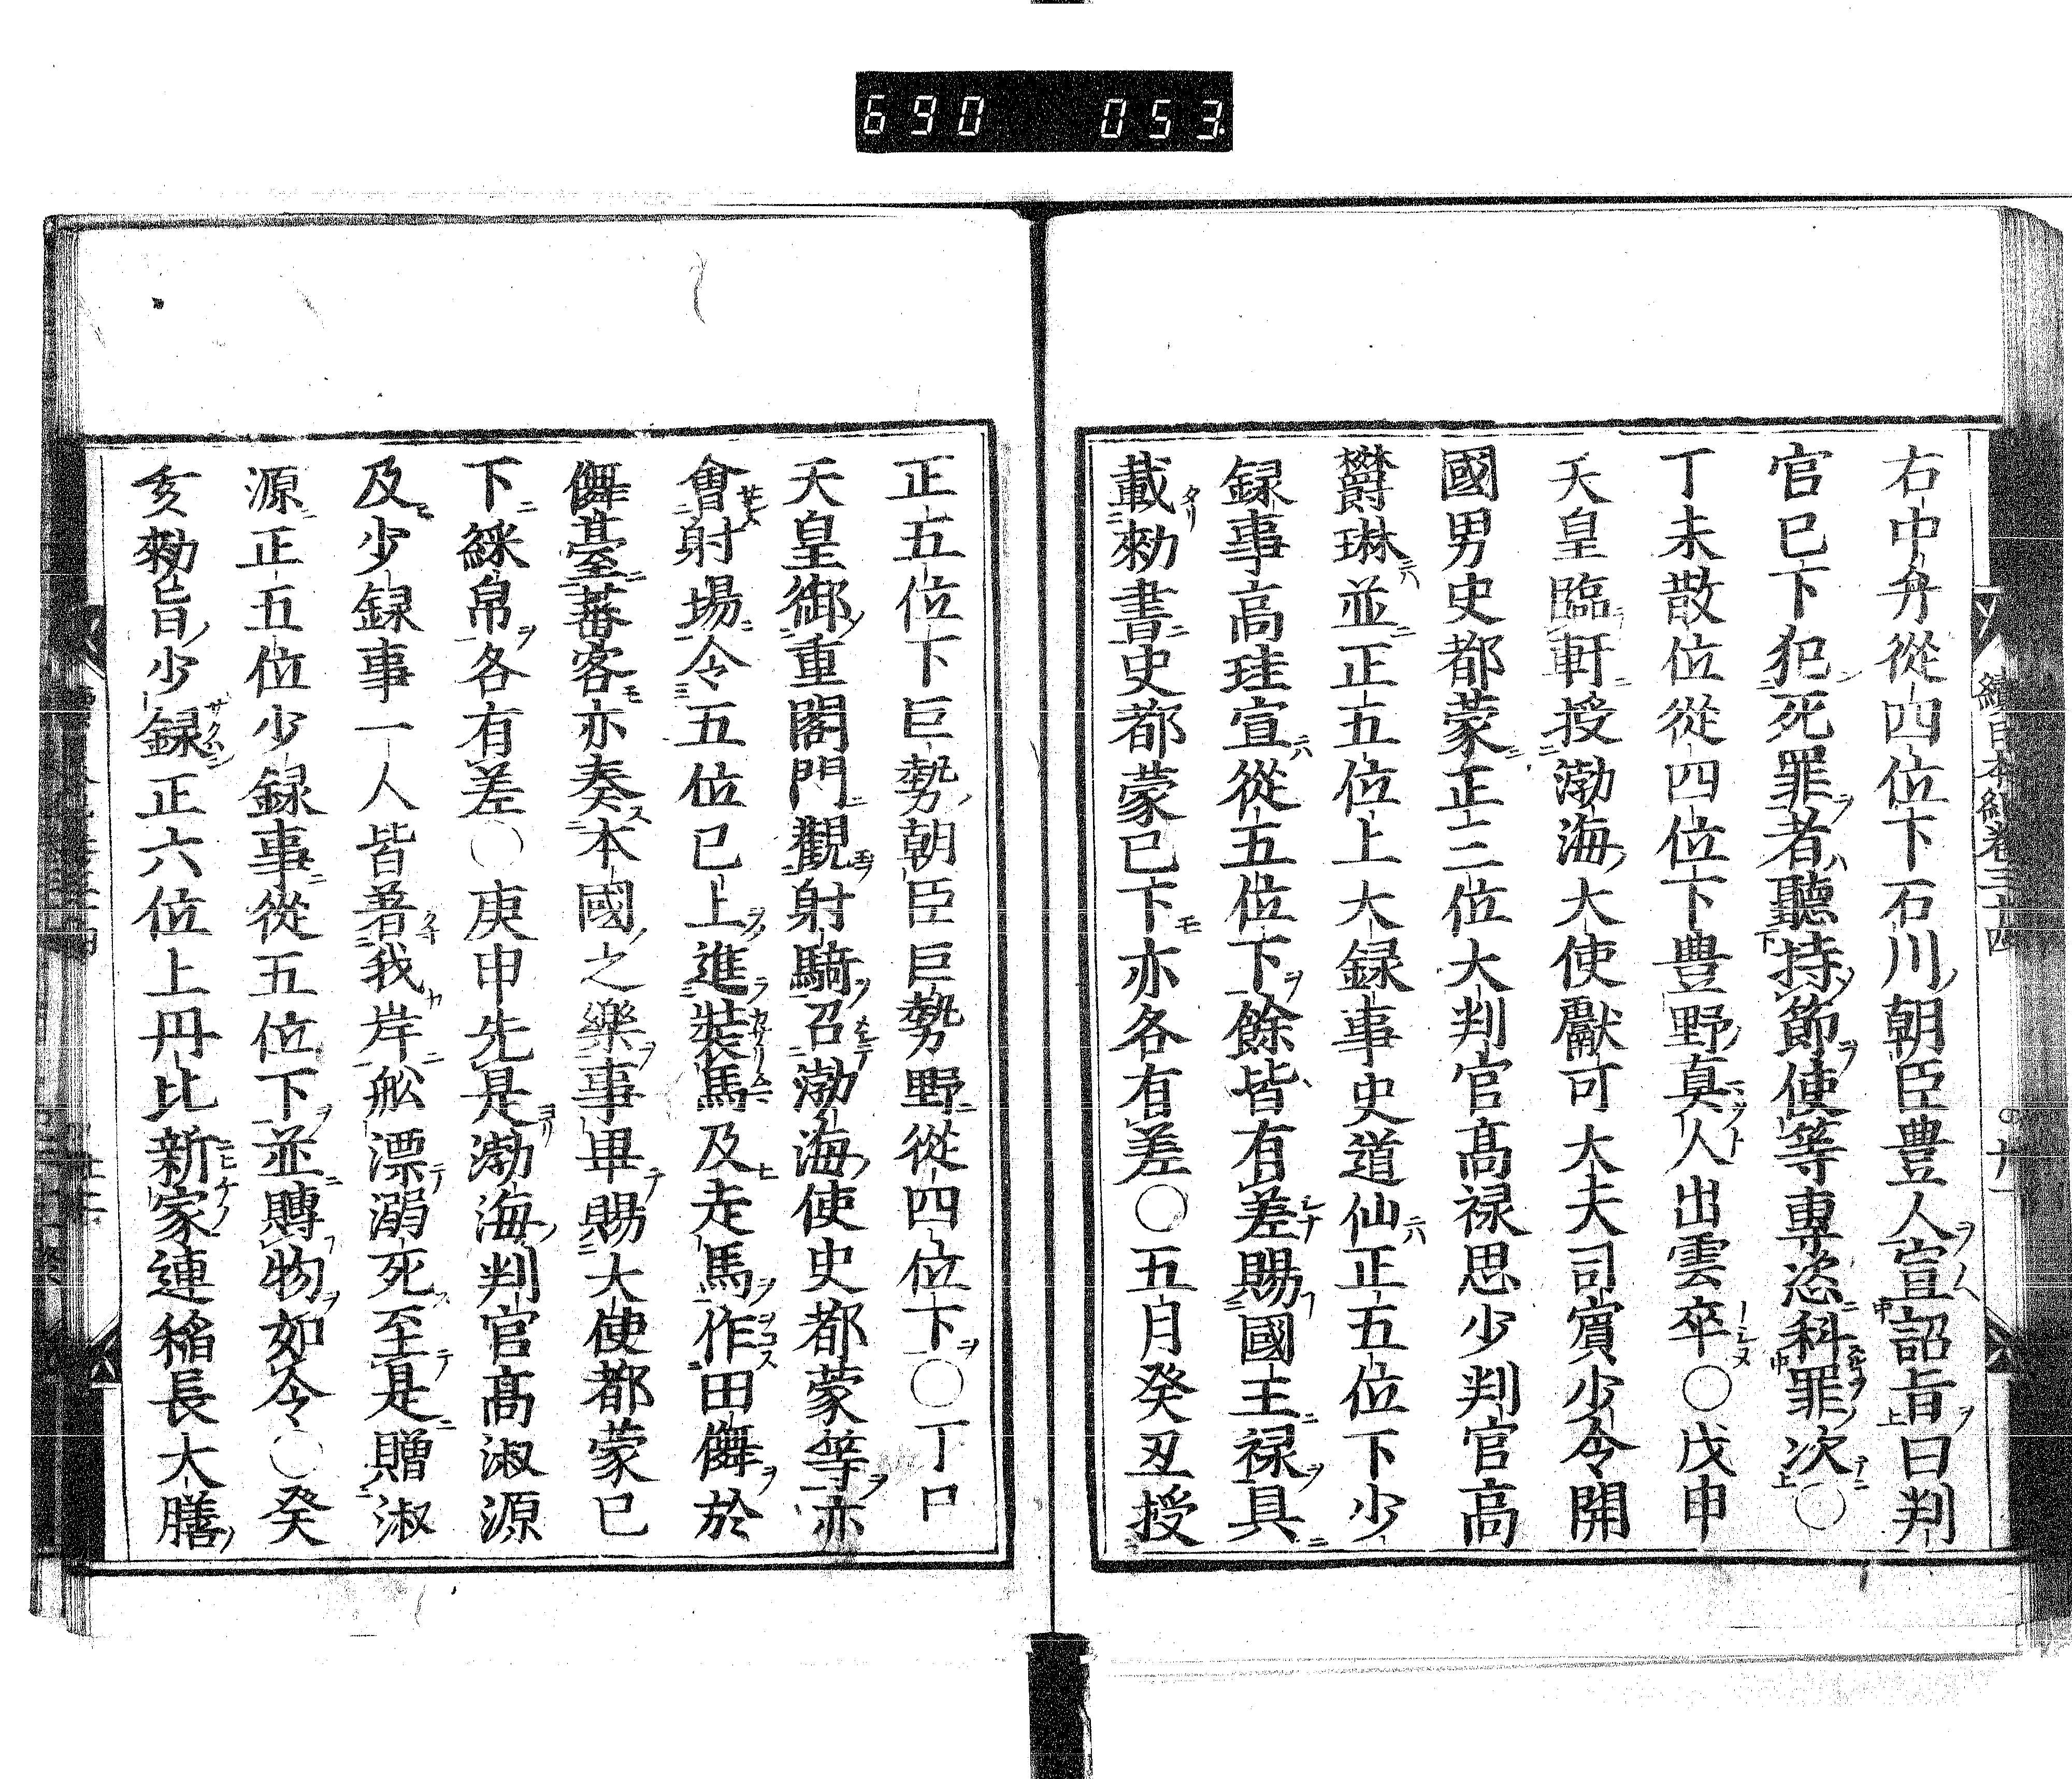 690 053
續日本紀卷三十四
右中弁從四位下石川朝臣豊人宣詔旨曰判
官已下犯死罪者聽持節使等專恣科罪次〇
丁未散位從四位下豊野真人出雲卒〇戊申
天皇臨軒授渤海大使獻可大夫司賓少令開
國男史都蒙正三位大判官髙禄思少判官高
欎琳並正五位上大録事史道仙正五位下少
録事高珪宣從五位下餘皆有差賜國王禄具
載勑書史都蒙已下亦各有差〇五月癸丑授
正五位下巨勢朝臣巨勢野從四位下〇丁巳
天皇御重閣門觀射騎召渤海使史都蒙等亦
會射場令五位已上進裝馬及走馬作田儛於
儛臺蕃客亦奏本國之樂事畢賜大使都蒙已
下綵帛各有差〇庚申先是渤海判官髙淑源
及少録事一人皆著我岸舩漂溺死至是贈淑
源正五位少録事從五位下並賻物如令〇癸
亥勑旨少録正六位上丹比新家連稲長大膳